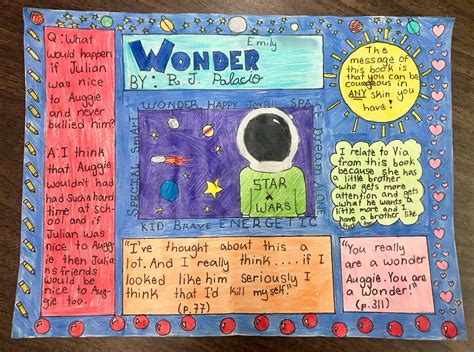 Q: What
would happen
if Julian
was nice
to Auggie
and never
bullied him?
A: I think
that Auggie
wouldn't had
had such a hard
time at sch-
ool and if
Julian was
nice to Aug-
gie then Julia-
ns friends
would be
nice to Aug-
gie too.
WONDER
Emily
BY: R.J. Palacio
WONDER HAPPY JOYful SPACE
Special SmArt
Dream Alone
STAR
WARS
KID BRAVE ENERGETIC
The
message of
this book is
that you can be
courageous in
ANY skin you
have!
I relate to Via
from this book
because she has
a little brother
who gets more
attention and gets
what he wants a
little more and I
have a brother like
that.
"I've thought about this a
lot. And I really think....if I
looked like him seriously I
think that I'd kill myself."
(p.77)
"You really
are a wonder
Auggie. You are
a Wonder!"
(p.311)